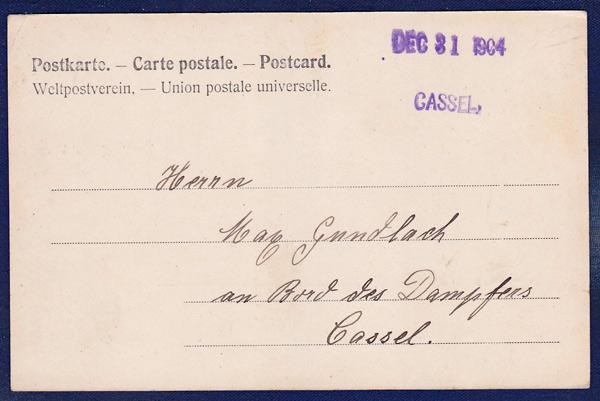 DEC 31 1904
Postkarte. — Carte postale. — Postcard.
Weltpostverein. — Union postale universelle.
CASSEL,
Herrn
Max Gundlach
an Bord des Dampfers
Cassel.